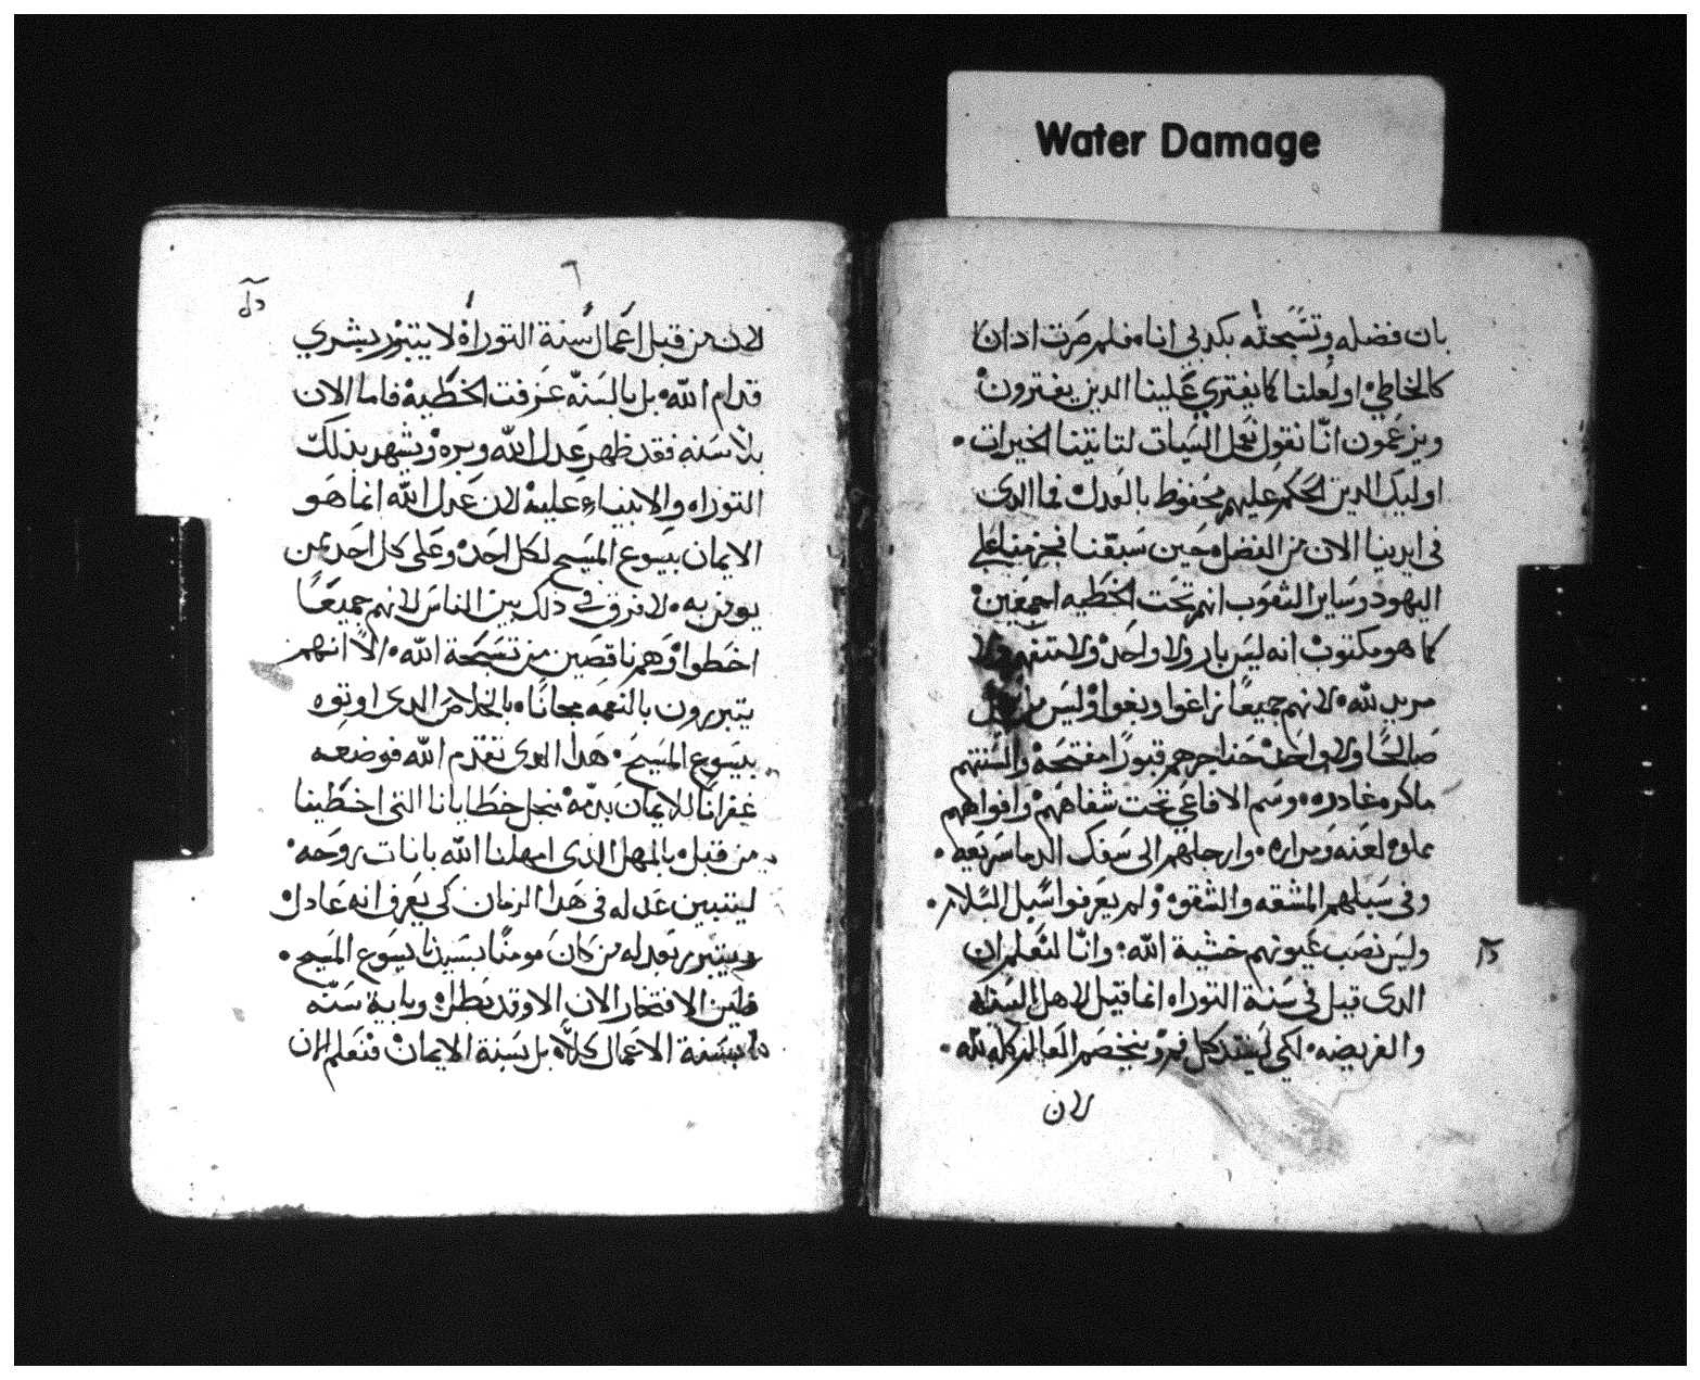 Water Damage
بان فضله وتسبحته بكدبي اناه فلم صرت ادان
كالخاطي او لعلنا كما يفتري علينا الدين يفترون
ويزعمون انا نقول نعمل السيات لتاتينا الخيرات
اوليك الدين الحكم عليهم محفوظ بالعدل فما الدى
فى ايدينا الان من الفضل حين سبقنا فجزمنا على
اليهود وساير الشعوب انهم تحت الخطيه اجمعين
كما هو مكتوب انه ليس بار ولا واحد ولا متفهم ولا
مريد لله لانهم جميعا زاغوا وبغوا وليس من
صالحا ولا واحد حناجرهم قبورا مفتحه والسنتهم
ماكره غادره وسم الافاعي تحت شفاههم وافواههم
مملوه لعنه ومراره وارجلهم الى سفك الدما سريعه
وفى سبلهم المشقه والشقوه ولم يعرفوا سبل السلام
وليس نصب عيونهم خشية الله وانا لنعلم ان
الدى قيل فى سنة التوراه انما قيل لاهل السنه
والفريضه لكي ليستد كل فم ويخصم العالم كله لله
لان
لان من قبل اعمال سنة التوراه لا يتبرر بشري
قدام الله بل بالسنه عرفت الخطيه فاما الان
بلا سنه فقد ظهر عدل الله وبره وتشهد بذلك
التوراه والانبياء عليه لان عدل الله انما هو
الايمان بيسوع المسيح لكل احد وعلى كل احد ممن
يومن به لا فرق في ذلك بين الناس لانهم جميعا
اخطوا وهم ناقصين من تسبحة الله الا انهم
يتبررون بالنعمه مجانا بالخلاص الدى اوتوه
بيسوع المسيح هدا الدى تقدم الله فوضعه
غفرانا للايمان بدمه منجل خطايانا التى اخطينا
من قبل بالمهل الدى امهلنا الله باناة روحه
ليتبين عدله فى هدا الزمان كي يعرف انه عادل
ويتبرر بعدله من كان مومنا بسيدنا يسوع المسيح
فاين الافتخار الان الا وقد بطل وباية سنه
ابسنة الاعمال كلا بل بسنة الايمان فنعلم الان